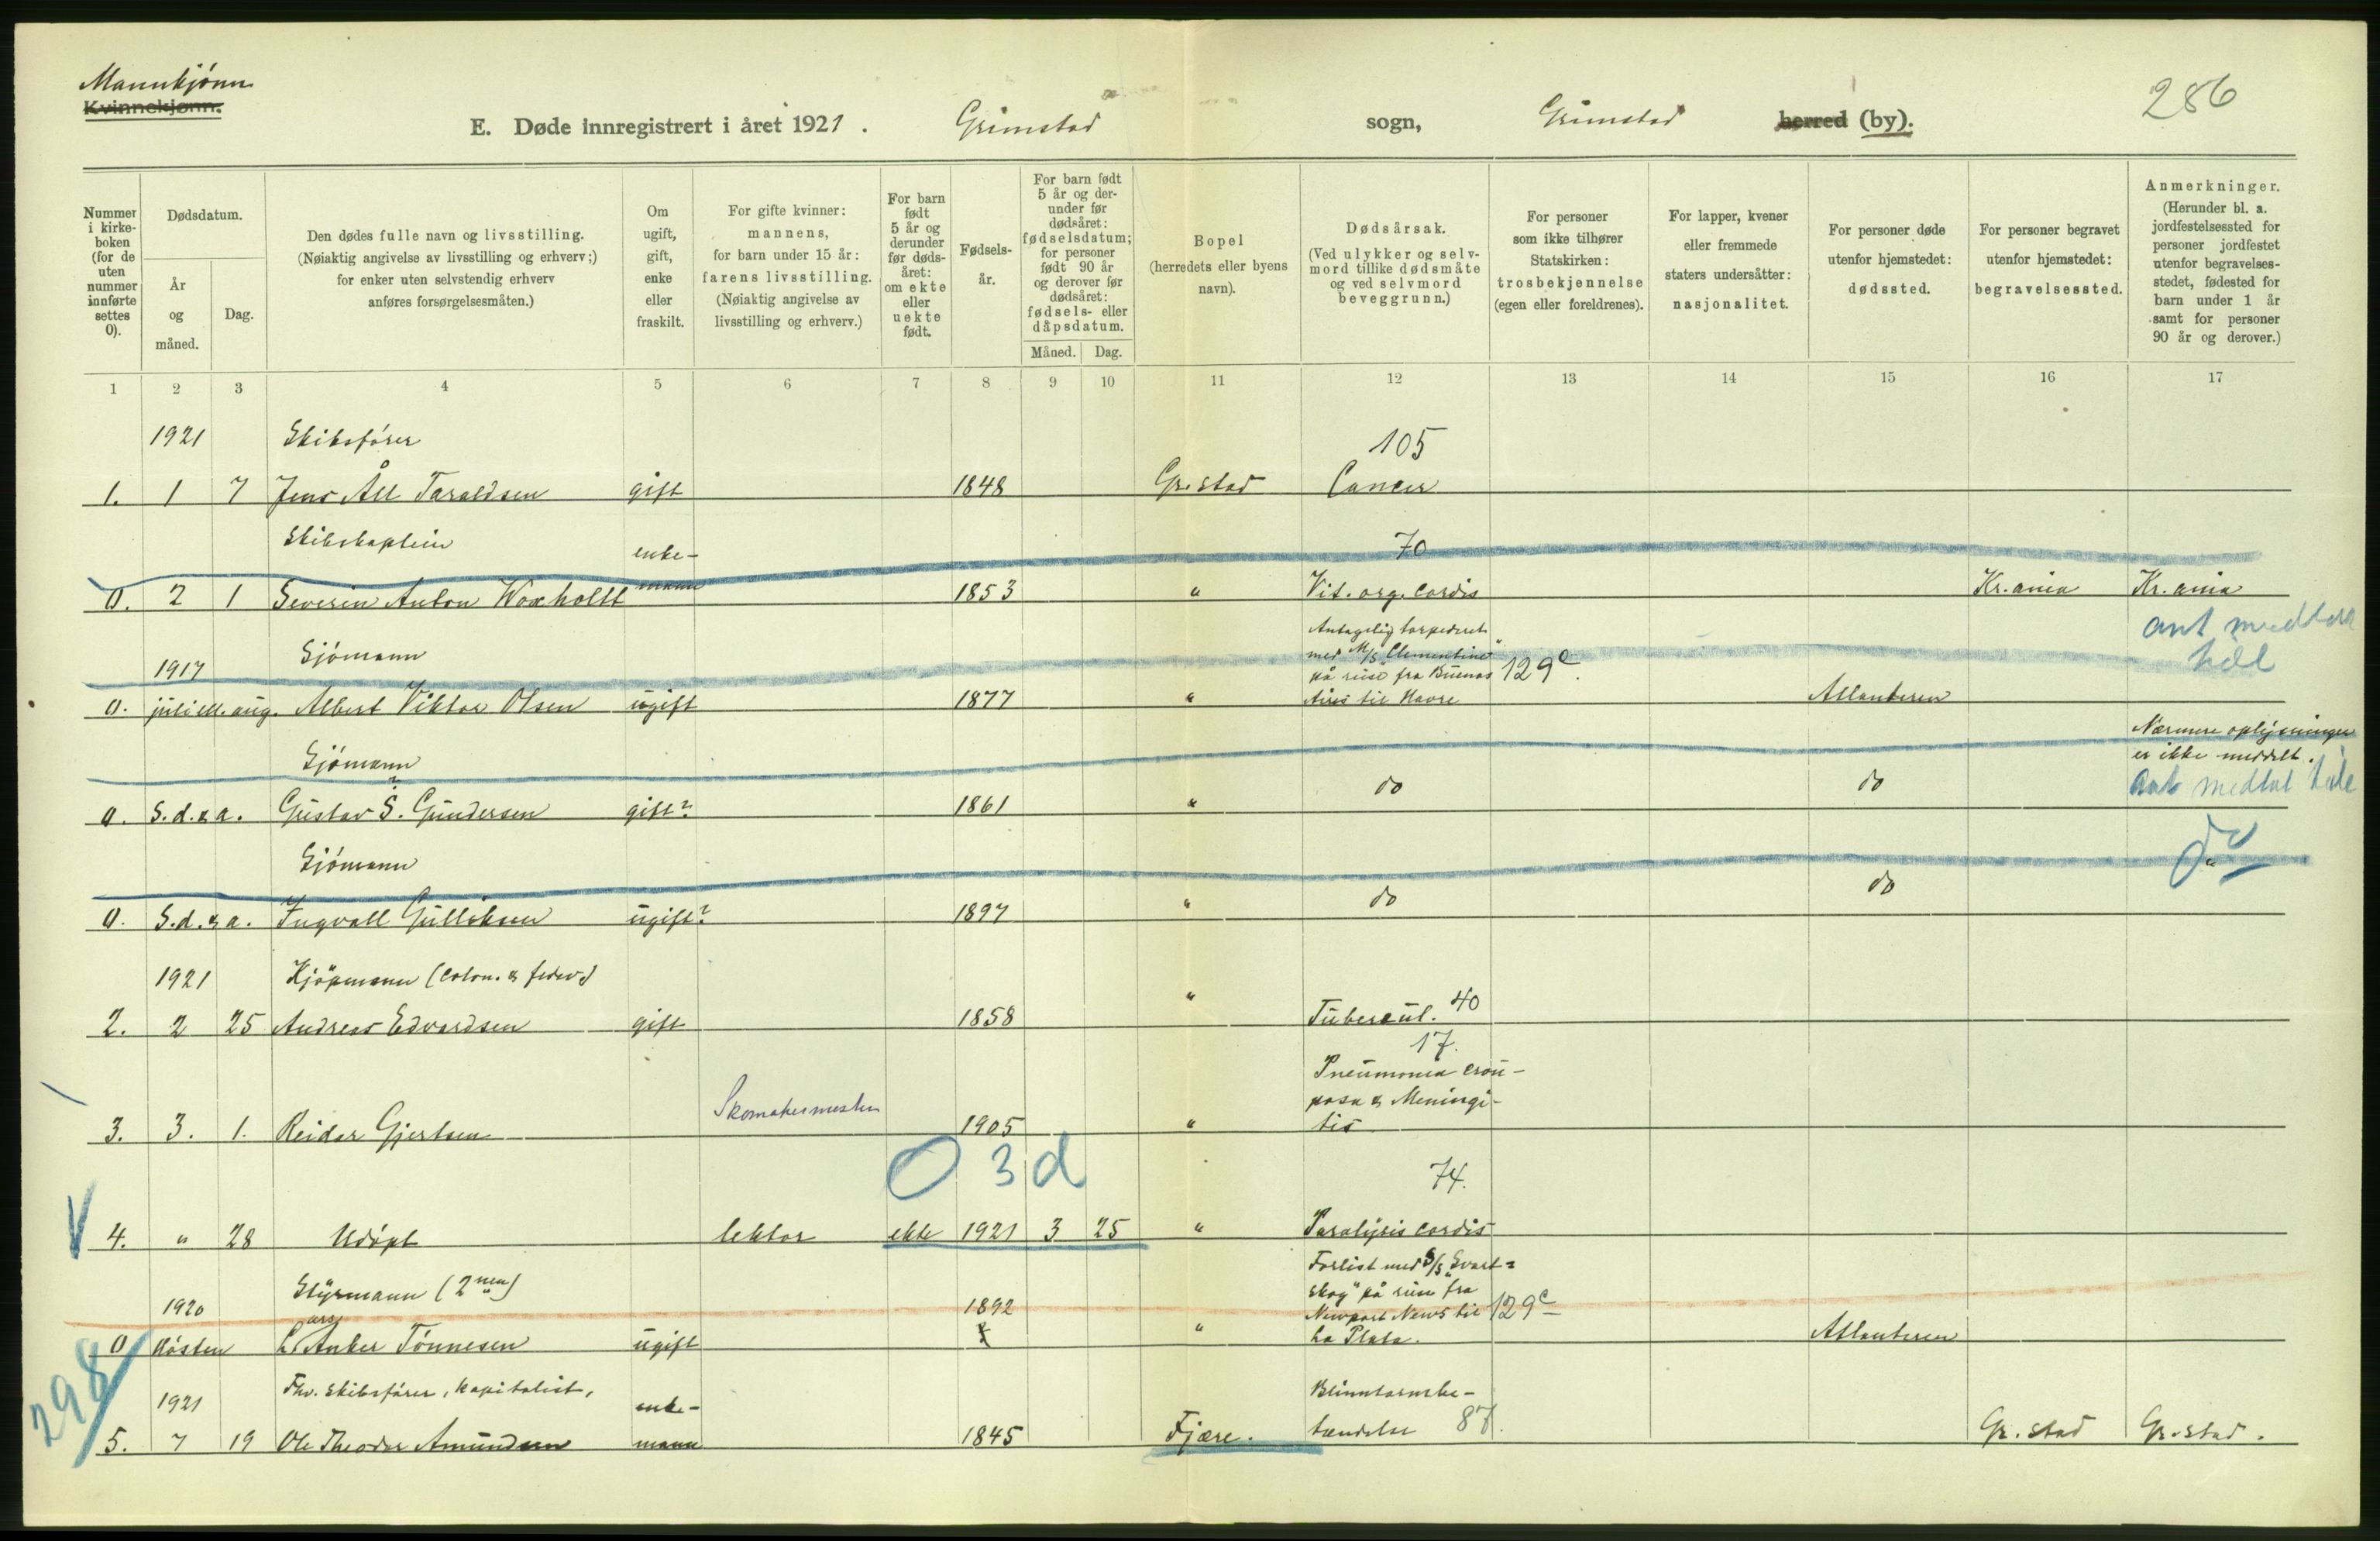 Mannkjønn
Kvinnekjønn.
286
E. Døde innregistrert i året 1921. Grimstad sogn, Grimstad herred (by).
Nummer i kirkeboken (for de uten nummer innførte settes 0).
Dødsdatum.
År og måned.
Dag.
Den dødes fulle navn og livsstilling.
(Nøiaktig angivelse av livsstilling og erhverv;)
for enker uten selvstendig erhverv
anføres forsørgelsesmåten.)
Om ugift, gift, enke eller fraskilt.
For gifte kvinner:
mannens,
for barn under 15 år:
farens livsstilling.
(Nøiaktig angivelse av
livsstilling og erhverv.)
For barn født 5 år og derunder før dødsåret: om ekte eller uekte født.
Fødselsår.
For barn født 5 år og derunder før dødsåret: fødselsdatum; for personer født 90 år og derover før dødsåret: fødsels- eller dåpsdatum.
Måned. Dag.
Bopel
(herredets eller byens
navn).
Dødsårsak.
(Ved ulykker og selvmord tillike dødsmåte og ved selvmord beveggrunn.)
For personer
som ikke tilhører
Statskirken:
trosbekjennelse
(egen eller foreldrenes).
For lapper, kvener
eller fremmede
staters undersåtter:
nasjonalitet.
For personer døde
utenfor hjemstedet:
dødssted.
For personer begravet
utenfor hjemstedet:
begravelsessted.
Anmerkninger.
(Herunder bl. a.
jordfestelsessted for
personer jordfestet
utenfor begravelses-
stedet, fødested for
barn under 1 år
samt for personer
90 år og derover.)
1 2 3 4 5 6 7 8 9 10 11 12 13 14 15 16 17
1921 Skibsfører 105
1. 1 7 Jens Åll Taraldsen gift 1848 Gr.stad Cancer
Skibskaptein enke- 70
0. 2 1 Severin Anton Woxholtt mann 1853 " Vit. org. cordis Kr.ania Kr.ania
Antagelig torpedert
1917 Sjømann med M/S "Clementine"
på reise fra Buenos 129c.
0. juli ell. aug. Albert Viktor Olsen ugift 1877 " Aires til Havre Atlanteren
Nærmere oplysninger
er ikke meddelt.
Sjømann
0. S.d.&a. Gustav S. Gundersen gift? 1861 " do do
Sjømann do "
0. S.d.&a. Ingvall Gulliksen ugift? 1897 " do do
1921 Kjøpmann (Colon. & fedev.)
2. 2 25 Andreas Edvardsen gift 1858 " Tubercul. 40
17.
Pneumonia crou-
posa & Meningi-
3. 3. 1. Reidar Gjertsen Skomakermester 1905 " tis
O 3 d 74.
4. " 28 Udøpt lektor ekte 1921 3 25 " Paralysis cordis
Forlist med S/S "Svart-
Styrmann (2nen) skog" på reise fra
1920 ars 1892 Newport News til 129c
0 Høsten L. Anker Tønnesen ugift " La Plata. Atlanteren
298
1921 Fhv. skibsfører, kapitalist, enke- Blinntarmbe-
5. 7 19 Ole Theodor Amundsen mann 1845 Fjære. tændelse 87. Gr.stad Gr.stad.